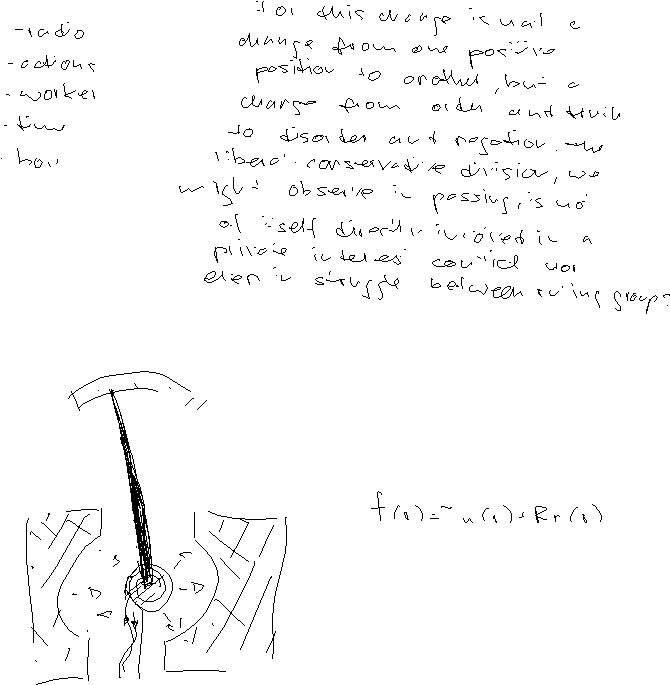 -radio
-actions
-worker
-time
For this change is not a
change from one positive
position to another, but a
change from order and truth
to disorder and negation. The
liberal-conservative division, we
might observe in passing, is not
of itself directly involved in a
private interest conflict nor
even in struggle between ruling groups.